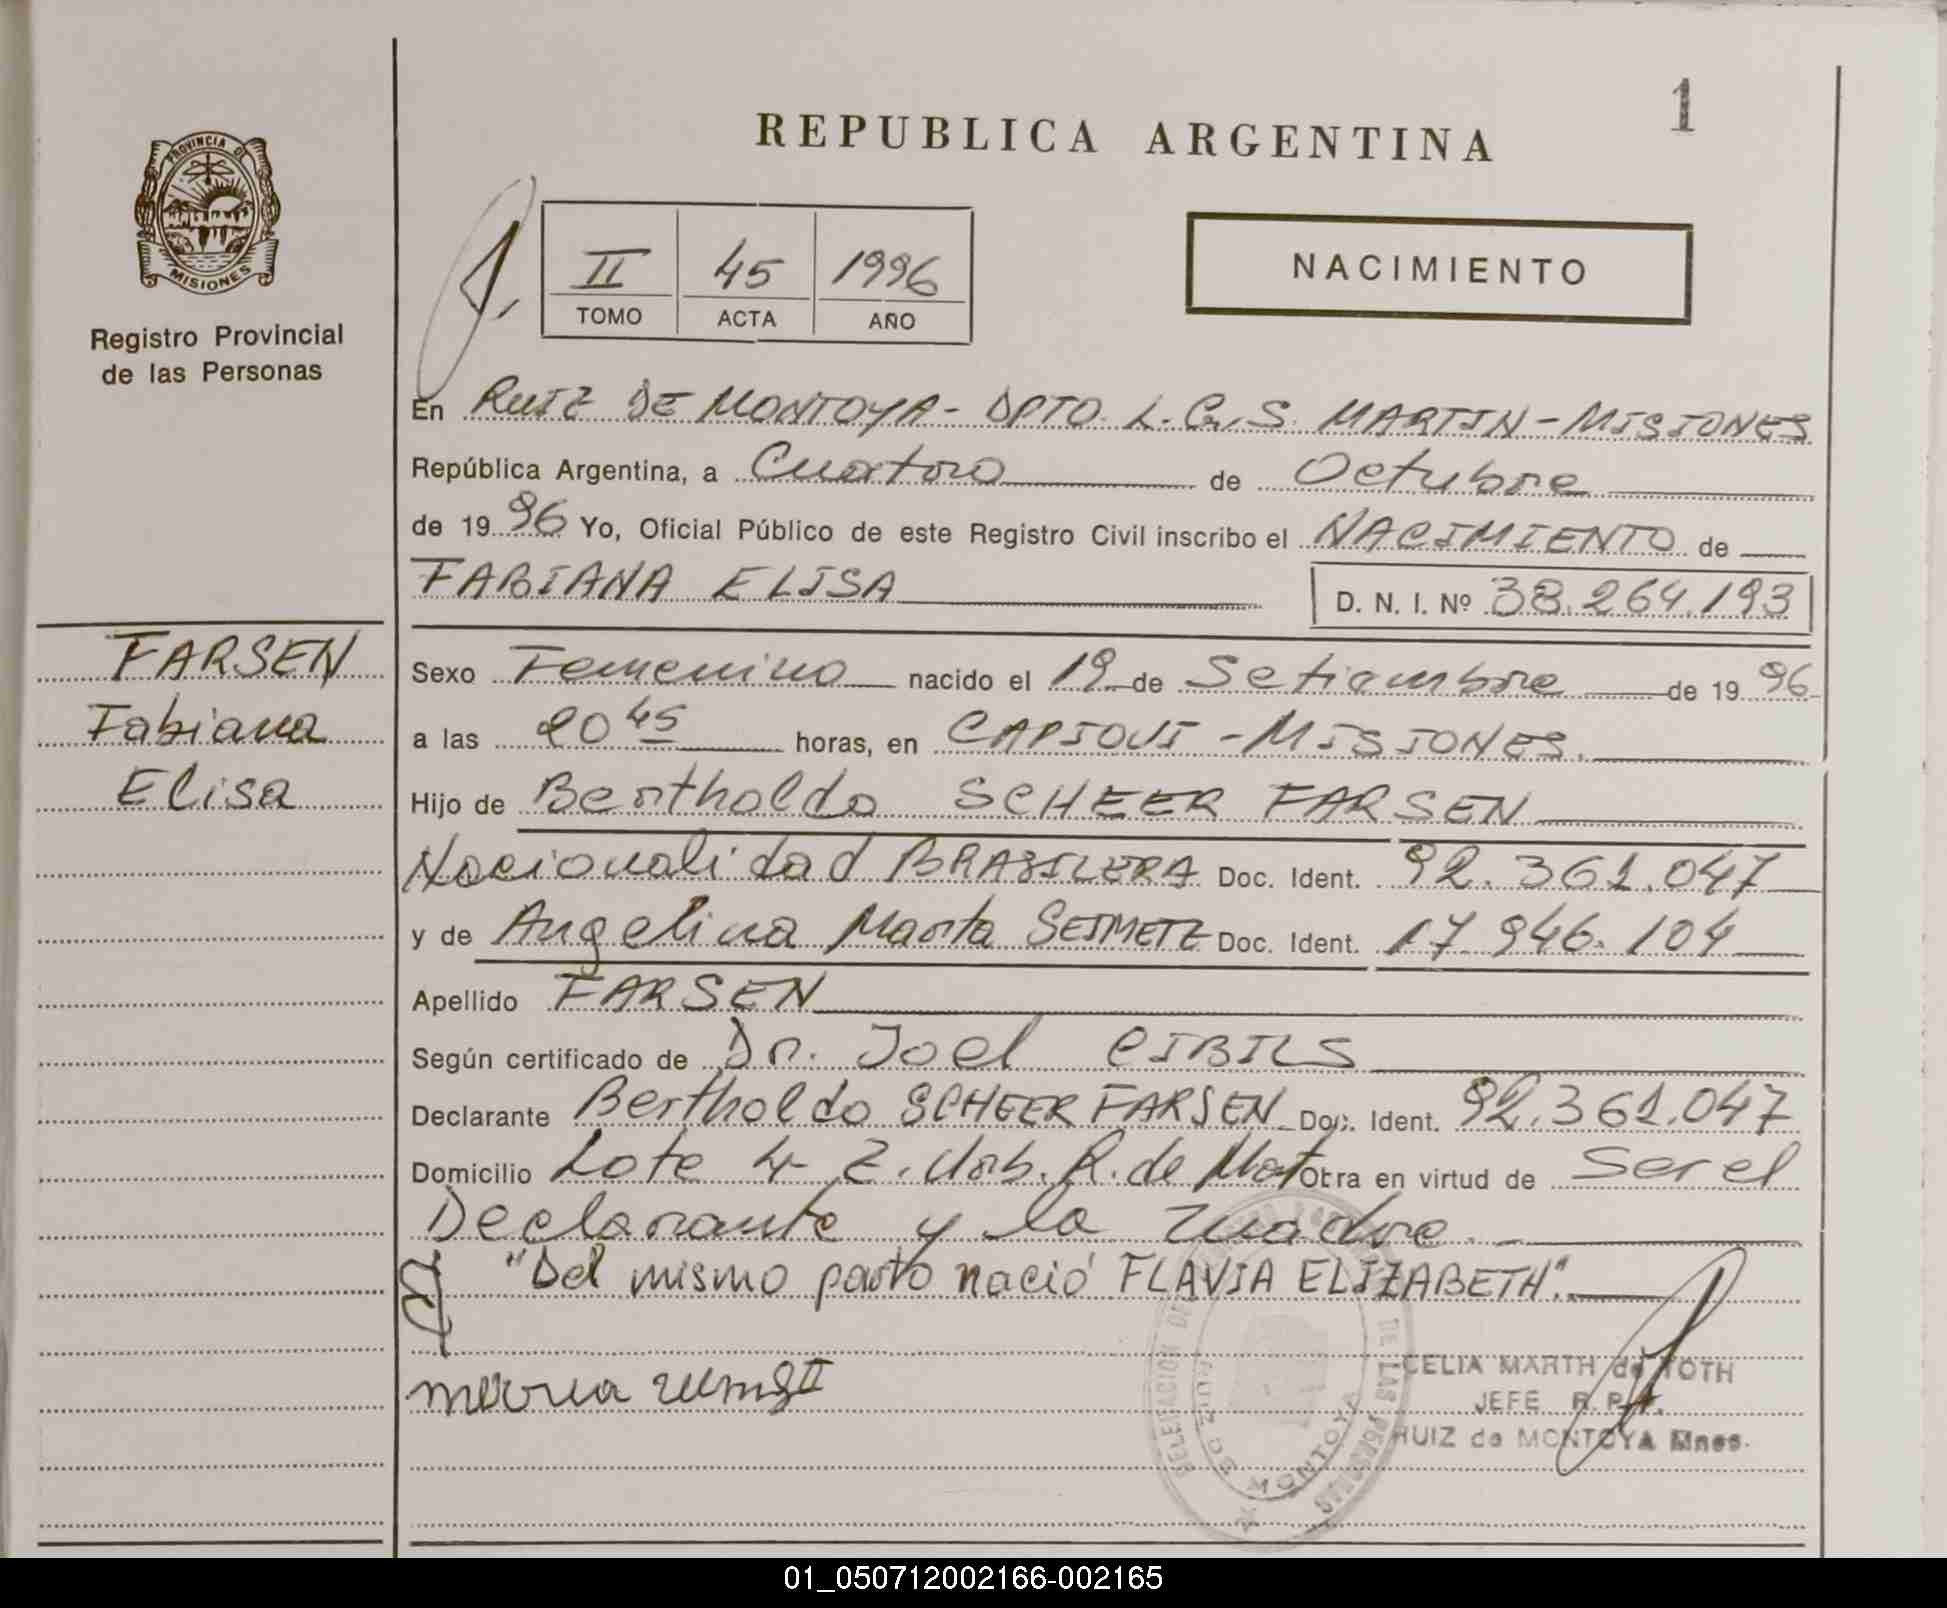 REPUBLICA ARGENTINA
1
PROVINCIA DE
MISIONES
Registro Provincial
de las Personas
II 45 1996
TOMO ACTA AÑO
NACIMIENTO
En RUIZ DE MONTOYA - DPTO. L.G.S. MARTIN - MISIONES
República Argentina, a Cuatro de Octubre
de 1996 Yo, Oficial Público de este Registro Civil inscribo el NACIMIENTO de
FABIANA ELISA D. N. I. Nº 38.264.193
FARSEN
Fabiana
Elisa
Sexo Femenino nacido el 19 de Setiembre de 1996
a las 20 45 horas, en CAPIOVI - MISIONES.
Hijo de Bertholdo SCHEER FARSEN
Nacionalidad BRASILERA Doc. Ident. 92.361.047
y de Angelina Marta SEIMETZ Doc. Ident. 17.946.104
Apellido FARSEN
Según certificado de Dr. Joel CIBILS
Declarante Bertholdo SCHEER FARSEN Doc. Ident. 92.361.047
Domicilio Lote 4 Z. Urb. R. de Mot Otra en virtud de Ser el
Declarante y la madre.-
"Del mismo parto nació FLAVIA ELIZABETH".
CELIA MARTH de TOTH
JEFE R. P. P.
RUIZ de MONTOYA Mnes.
DELEGACION DEL REGISTRO PROVINCIAL DE LAS PERSONAS
RUIZ DE MONTOYA
01_050712002166-002165